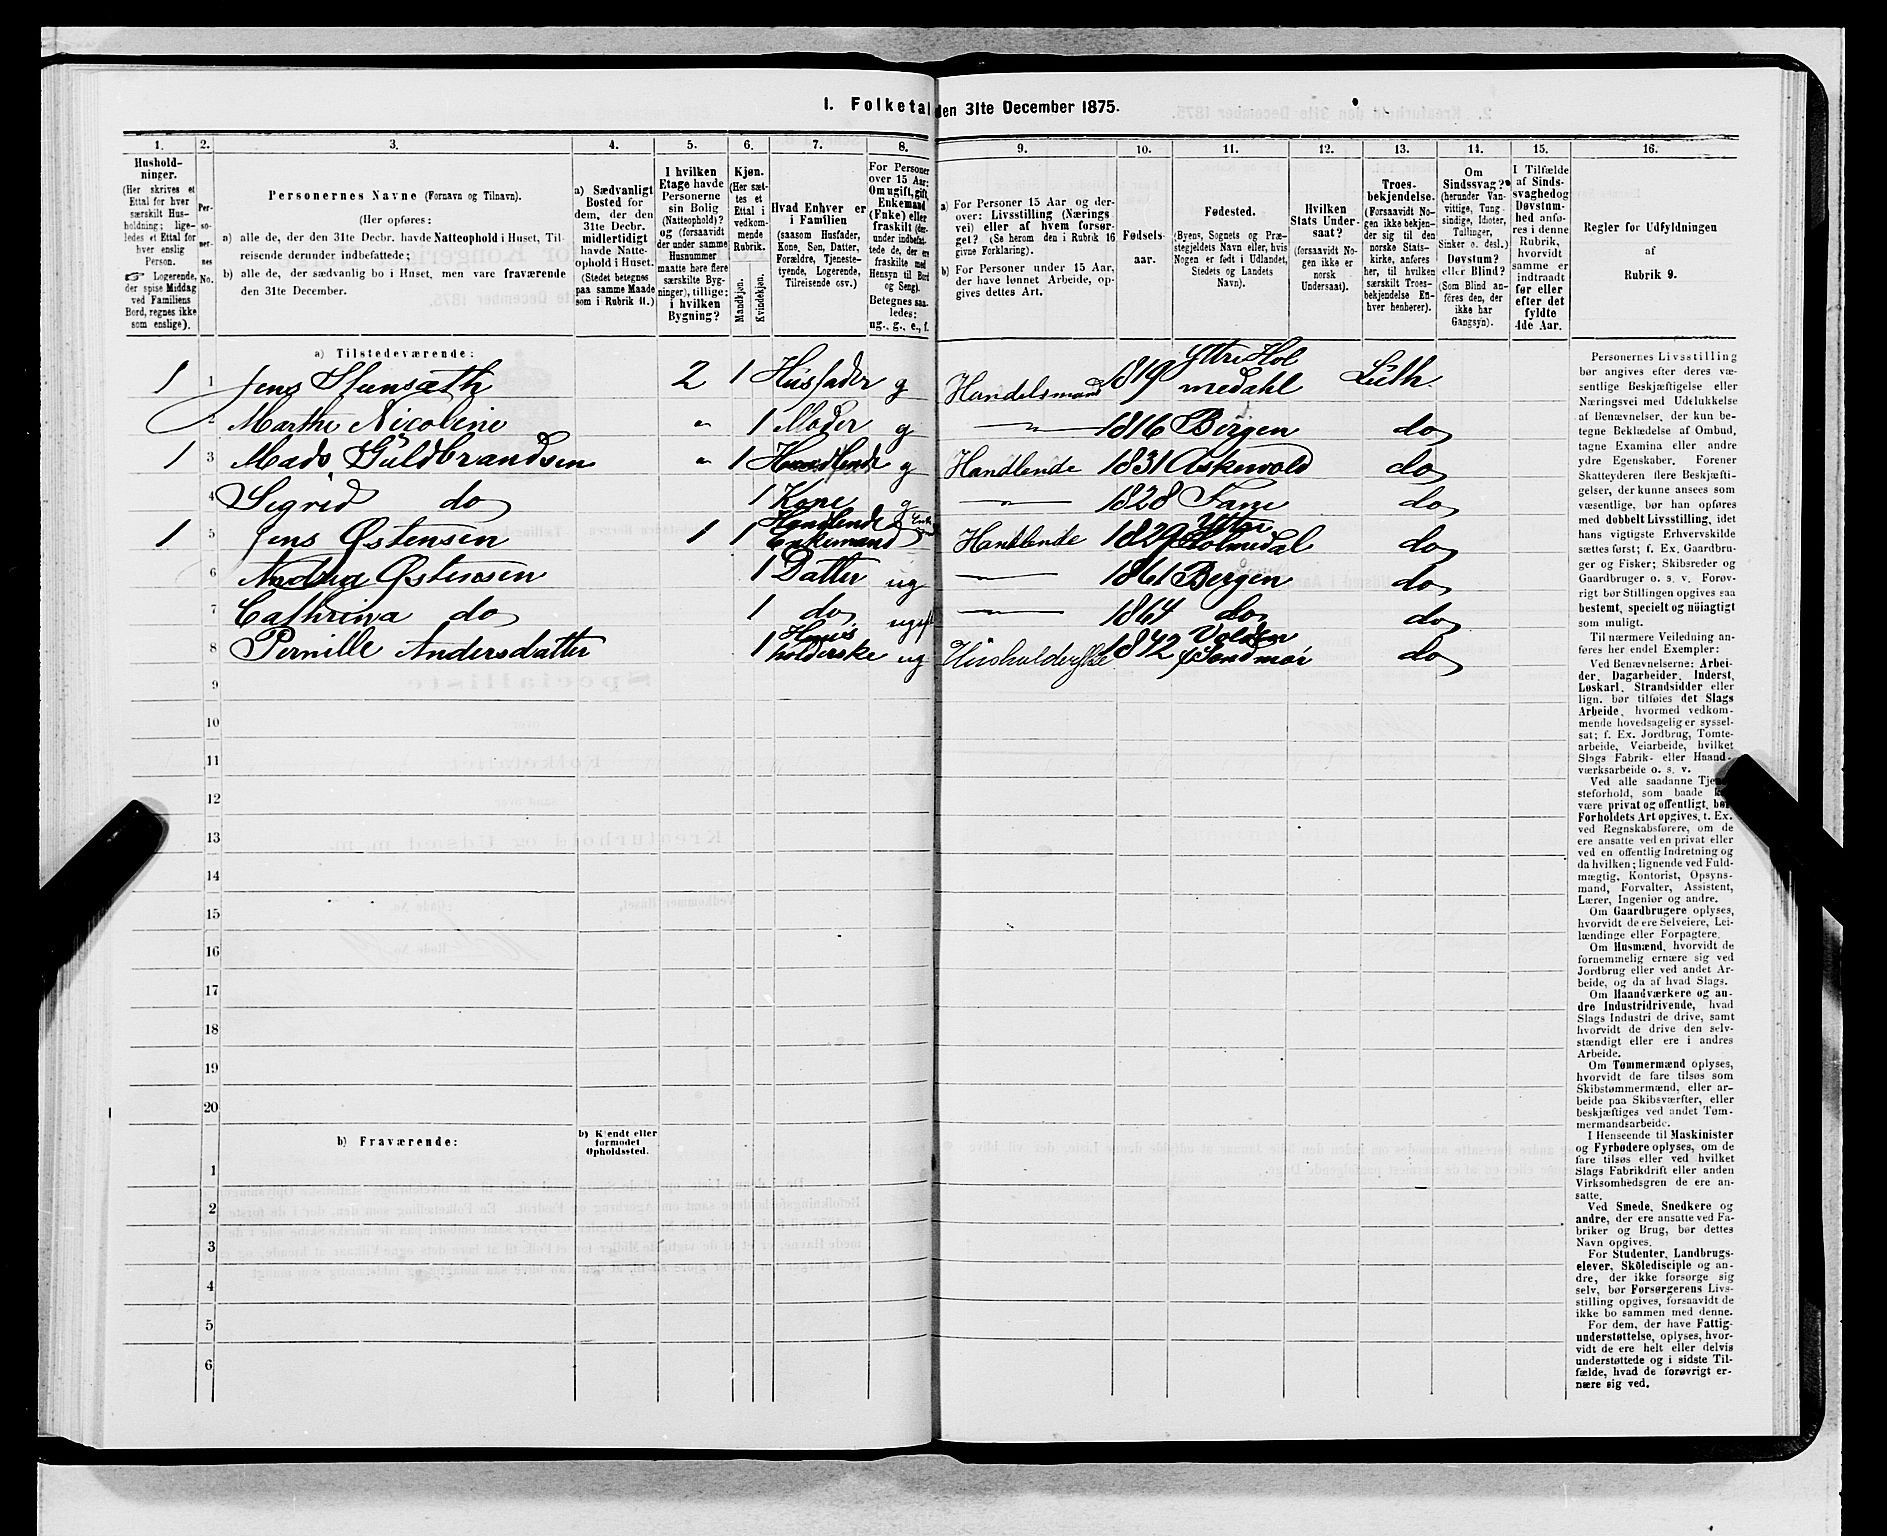 1. Folketal den 31te December 1875.
1. 2. 3. 4. 5. 6. 7. 8. 9. 10. 11. 12. 13. 14. 15. 16.
Hushold-
ninger.
(Her skrives et
Ettal for hver
særskilt Hus-
holdning; lige-
ledes et Ettal for
hver enslig
Person.
☞ Logerende,
der spise Middag
ved Familiens
Bord, regnes ikke
som enslige).
Per-
so-
ner-
nes
No.
Personernes Navne (Fornavn og Tilnavn).
(Her opføres:
a) alle de, der den 31te Decbr. havde Natteophold i Huset, Til-
reisende derunder indbefattede;
b) alle de, der sædvanlig bo i Huset, men vare fraværende
den 31te December.
a) Sædvanligt
Bosted for
dem, der den
31te Decbr.
midlertidigt
havde Natte-
ophold i Huset.
(Stedet betegnes
paa samme Maade
som i Rubrik 11.)
I hvilken
Etage havde
Personerne
sin Bolig
(Natteophold)?
og (forsaavidt
der under samme
Husnummer
maatte høre flere
særskilte Byg-
ninger), tillige:
i hvilken
Bygning?
Kjøn.
(Her sæt-
tes et
Ettal i
vedkom-
mende
Rubrik.
Mandkjøn.
Kvindekjøn.
Hvad Enhver er
i Familien
(saasom Husfader,
Kone, Søn, Datter,
Forældre, Tjeneste-
tyende, Logerende,
Tilreisende osv.)
For Personer
over 15 Aar:
Om ugift, gift,
Enkemand
(Enke) eller
fraskilt (der-
under indbefat-
tede de, der ere
fraskilte med
Hensyn til Bord
og Seng).
Betegnes saa-
ledes:
ug., g., e., f.
a) For Personer 15 Aar og der-
over: Livsstilling (Nærings
vei) eller af hvem forsør-
get? (Se herom den i Rubrik 16
givne Forklaring).
b) For Personer under 15 Aar,
der have lønnet Arbeide, op-
gives dettes Art.
Fødsels-
aar.
Fødested.
(Byens, Sognets og Præ-
stegjeldets Navn eller, hvis
Nogen er født i Udlandet,
Stedets og Landets
Navn).
Hvilken
Stats Under-
saat?
(forsaavidt No-
gen ikke er
norsk
Undersaat).
Troes-
bekjendelse.
(Forsaavidt No-
gen ikke bekjen-
der sig til den
norske Stats-
kirke, anføres
her, til hvilken
særskilt Troes-
bekjendelse En-
hver henhører).
Om
Sindssvag?
(herunder Van-
vittige, Tung-
sindige, Idioter,
Tullinger,
Sinker o. desl.)
Døvstum?
eller Blind?
(Som Blind an-
føres den, der
ikke har
Gangsyn).
I Tilfælde
af Sinds-
svaghed og
Døvstum-
hed anfø-
res i denne
Rubrik,
hvorvidt
samme er
indtraadt
før eller
efter det
fyldte
4de Aar.
Regler for Udfyldningen
af
Rubrik 9.
a) Tilstedeværende:
1 1 Jens Stensæth 2 1 Husfader g Handelsmand 1819 Yttre Hol
medahl Luth
2 Marthe Nicoline " 1 Moder g " 1816 Bergen do
1 3 Mads Guldbrandsen " 1 g Handlende 1831 Askevold do
4 Sigrid do 1 Kone g " 1828 Fane do
1 5 Jens Østensen 1 1 Handlende
Enkemand Handlende 1829 Yttre
Holmedal do
6 Andrea Østensen 1 Datter ug " 1861 Bergen do
7 Cathrina do 1 do ugift " 1864 do do
8 Pernille Andersdatter 1 Huus
holderske ug Huusholderske 1842 Volden
Søndmør do
9
10
11
12
13
14
15
16
17
18
19
20
b) Fraværende:
b) Kjendt eller
formodet
Opholdssted.
1
2
3
4
5
6
Personernes Livsstilling
bør angives efter deres væ-
sentlige Beskjæftigelse eller
Næringsvei med Udelukkelse
af Benævnelser, der kun be-
tegne Beklædelse af Ombud,
tagne Examina eller andre
ydre Egenskaber. Forener
Skatteyderen flere Beskjæfti-
gelser, der kunne ansees som
væsentlige, bør han opføres
med dobbelt Livsstilling, idet
hans vigtigste Erhvervskilde
sættes først; f. Ex. Gaardbru-
ger og Fisker; Skibsreder og
Gaardbruger o. s. v. Forøv-
rigt bør Stillingen opgives saa
bestemt, specielt og nøiagtigt
som muligt.
Til nærmere Veiledning an-
føres her endel Exempler:
Ved Benævnelserne: Arbei-
der, Dagarbeider, Inderst,
Løskarl, Strandsidder eller
lign. bør tilføies det Slags
Arbeide, hvormed vedkom-
mende hovedsagelig er syssel-
sat; f. Ex. Jordbrug, Tomte-
arbeide, Veiarbeide, hvilket
Slags Fabrik- eller Haand-
værksarbeide o. s. v.
Ved alle saadanne Tjene-
steforhold, som baade kan
være privat og offentligt, bør
Forholdets Art opgives, t. Ex.
ved Regnskabsførere, om de
ere ansatte ved en privat eller
ved en offentlig Indretning og
da hvilken; lignende ved Fuld-
mægtig, Kontorist, Opsyns-
mand, Forvalter, Assistent,
Lærer, Ingeniør og andre.
Om Gaardbrugere oplyses,
hvorvidt de ere Selveiere, Lei-
lændinge eller Forpagtere.
Om Husmænd, hvorvidt de
fornemmelig ernære sig ved
Jordbrug eller ved andet Ar-
beide, og da af hvad Slags.
Om Haandværkere og an-
dre Industridrivende, hvad
Slags Industri de drive, samt
hvorvidt de drive den selv-
stændigt eller ere i andres
Arbeide.
Om Tømmermænd oplyses,
hvorvidt de fare tilsøs som
Skibstømmermænd, eller ar-
beide paa Skibsværfter, eller
beskjæftiges ved andet Tøm-
mermandsarbeide.
I Henseende til Maskinister
og Fyrbødere oplyses, om de
fare tilsøs eller ved hvilket
Slags Fabrikdrift eller anden
Virksomhedsgren de ere an-
satte.
Ved Smede, Snedkere og
andre, der ere ansatte ved Fa-
briker og Brug, bør dettes
Navn opgives.
For Studenter, Landbrugs-
elever, Skoledisciple og an-
dre, der ikke forsørge sig
selv, bør Forsørgerens Livs-
stilling opgives, forsaavidt de
ikke bo sammen med denne.
For dem, der have Fattig-
understøttelse, oplyses, hvor-
vidt de ere helt eller delvis
understøttede og i sidste Til-
fælde, hvad de forøvrigt er-
nære sig ved.